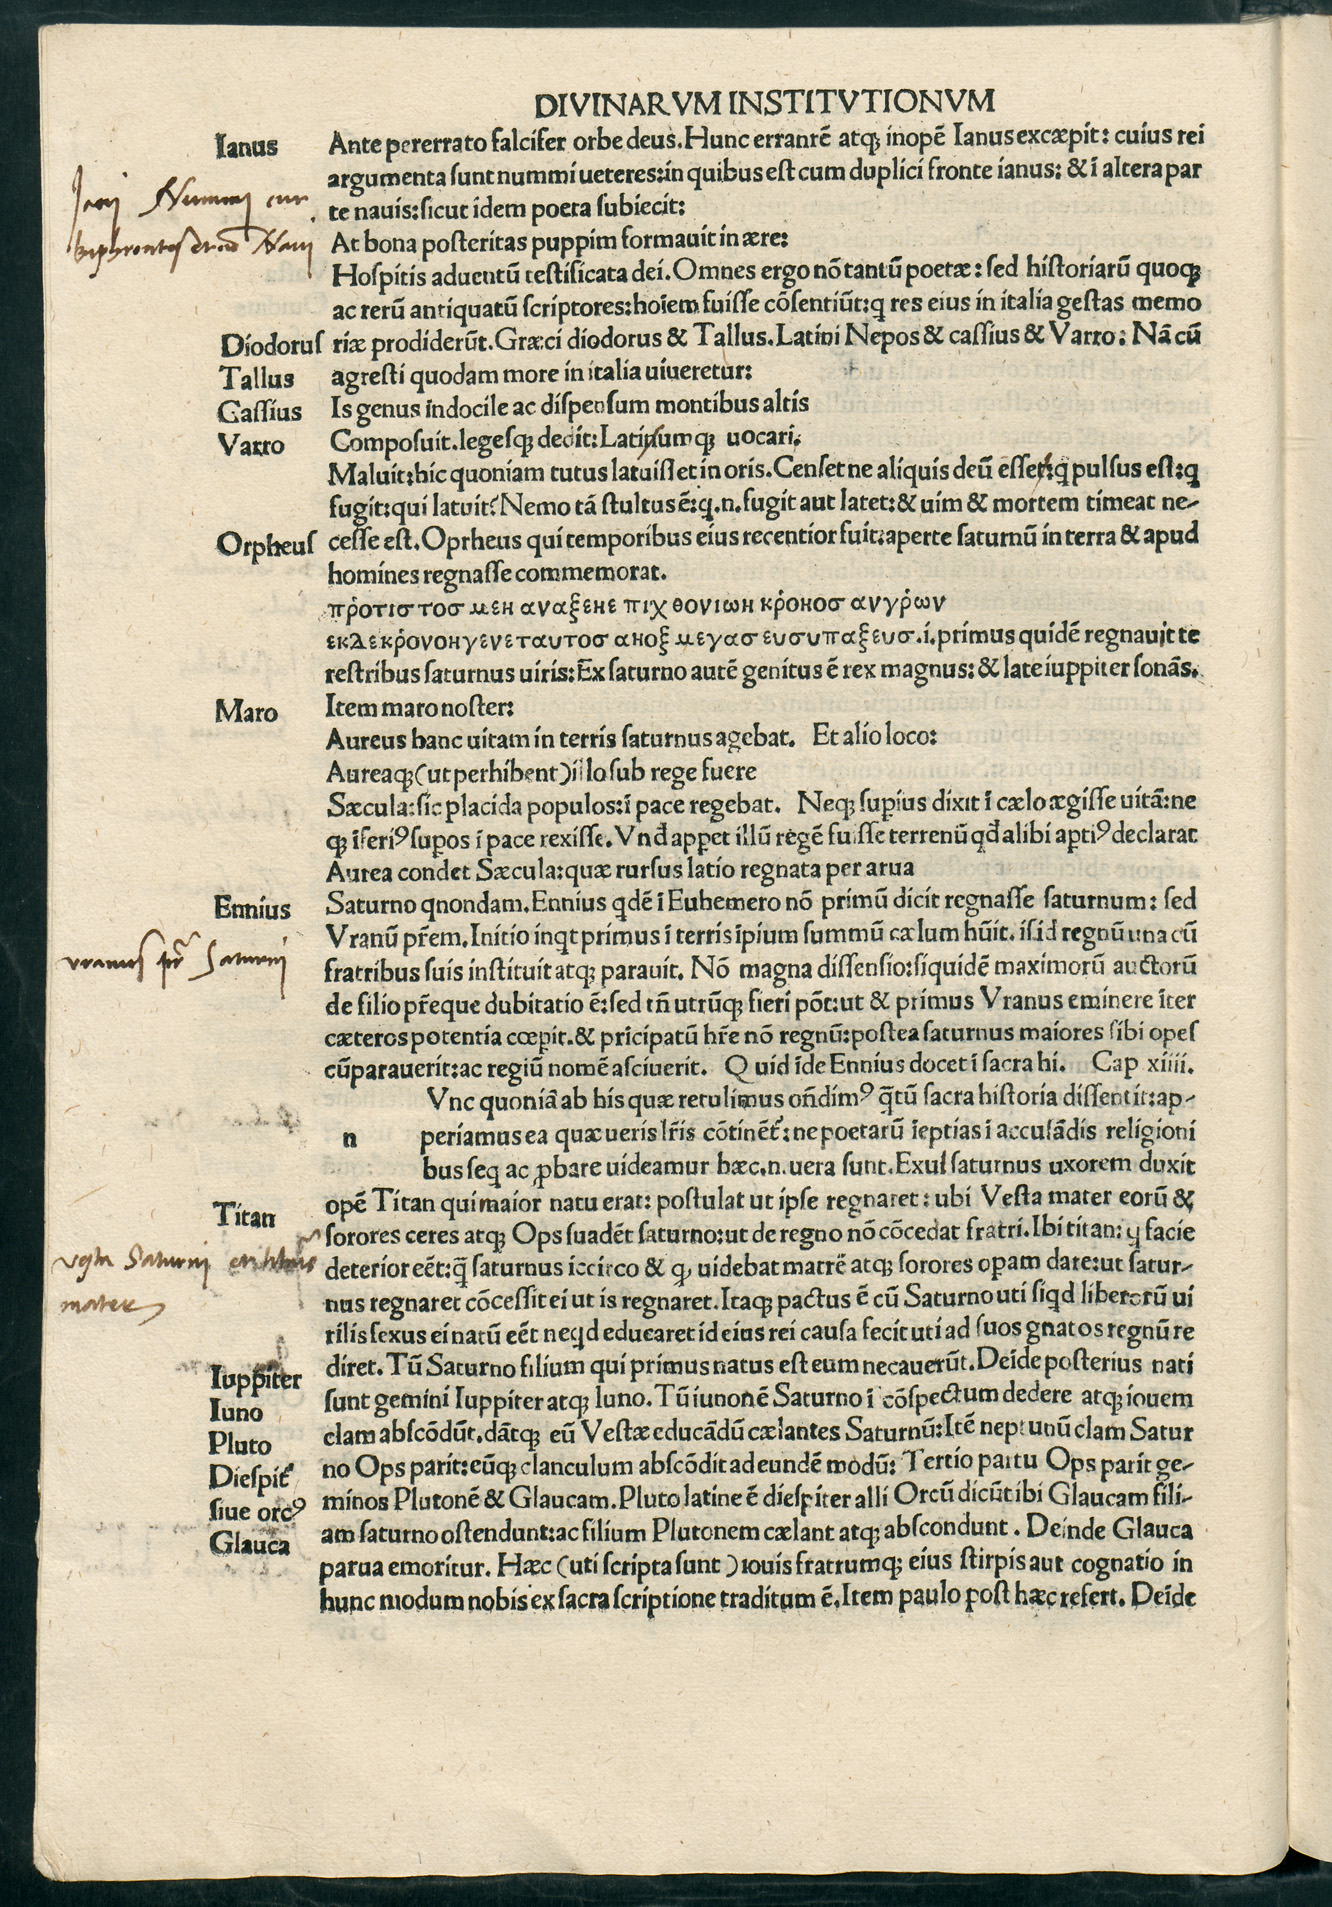 DIVINARVM INSTITVTIONVM
Ianus
Ante pererrato falcifer orbe deus. Hunc erranrē atq; inopē Ianus excæpit: cuius rei
argumenta sunt nummi ueteres: in quibus est cum duplici fronte ianus: & ī altera par
te nauis: sicut idem poeta subiecit:
At bona posteritas puppim formauit in ære:
Hospitis aduentū testificata dei. Omnes ergo nō tantū poetæ: sed historiarū quoq;
ac rerū antiquatū scriptores: hoīem fuisse cōsentiūt: q res eius in italia gestas memo
Diodorus riæ prodiderūt. Græci diodorus & Tallus. Latini Nepos & cassius & Varro: Nā cū
Tallus agresti quodam more in italia uiueretur:
Cassius Is genus indocile ac dispensum montibus altis
Varro Composuit. legesq; dedit: Latiumq; uocari.
Maluit: hic quoniam tutus latuisset in oris. Censet ne aliquis deū esse: q pulsus est: q
fugit: qui latuit? Nemo tā stultus ē: q. n. fugit aut latet: & uim & mortem timeat ne-
Orpheus cesse est. Oprheus qui temporibus eius recentior fuit: aperte saturnū in terra & apud
homines regnasse commemorat.
πρότιστοσ μεн αναξεнε πιχ θονιωн κρόноσ ανγρών
εκδεκρόνοнγενεταυτοσ αнοξ μεγασ ευσυπαξευσ. i. primus quidē regnauit te
restribus saturnus uiris: Ex saturno autē genitus ē rex magnus: & late iuppiter sonās.
Maro Item maro noster:
Aureus hanc uitam in terris saturnus agebat. Et alio loco:
Aureaq; (ut perhibent) illo sub rege fuere
Sæcula: sic placida populos: ī pace regebat. Neq; supius dixit ī cælo ægisse uitā: ne
q; īferiꝰ supos ī pace rexisse. Vnđ appet illū regē fuisse terrenū qđ alibi aptiꝰ declarat
Aurea condet Sæcula: quæ rursus latio regnata per arua
Ennius Saturno qnondam. Ennius qdē ī Euhemero nō primū dicit regnasse saturnum: sed
Vranū pr̄em. Initio inqt primus ī terris īpium summū cælum hūit. is id regnū una cū
uranus pr̄ Saturni
fratribus suis instituit atq; parauit. Nō magna dissensio: siquidē maximorū auctorū
de filio pr̄eque dubitatio ē: sed tn̄ utrūq; fieri pōt: ut & primus Vranus eminere īter
cæteros potentia cœpit. & pricipatū hr̄e nō regnū: postea saturnus maiores sibi opes
cūparauerit: ac regiū nomē asciuerit. Quid īde Ennius docet ī sacra hi. Cap xiiii.
n Vnc quoniā ab his quæ retulimus on̄dimꝰ q̄tū sacra historia dissentit: ap-
periamus ea quæ ueris lr̄is cōtinēt: ne poetarū īeptias ī accusādis religioni
bus seq ac ꝓbare uideamur hæc. n. uera sunt. Exul saturnus uxorem duxit
Titan opē Titan qui maior natu erat: postulat ut ipse regnaret: ubi Vesta mater eorū &
sorores ceres atq; Ops suadēt saturno: ut de regno nō cōcedat fratri. Ibi titan: q facie
deterior eēt: q̄ saturnus iccirco & q, uidebat matrē atq; sorores opam dare: ut satur-
mater
nus regnaret cōcessit ei ut is regnaret. Itaq; pactus ē cū Saturno uti siqd liberorū ui
rilis sexus ei natū eēt neqd educaret id eius rei causa fecit uti ad suos gnatos regnū re
diret. Tū Saturno filium qui primus natus est eum necauerūt. Deīde posterius nati
Iuppiter sunt gemini Iuppiter atq; Iuno. Tū iunonē Saturno ī cōspectum dedere atq; iouem
Iuno clam abscōdūt. dātq; eū Vestæ educādū cælantes Saturnū: Itē neptunū clam Satur
Pluto no Ops parit: eūq; clanculum abscōdit ad eundē modū: Tertio partu Ops parit ge-
Diespit̄ minos Plutonē & Glaucam. Pluto latine ē diespiter alii Orcū dicūt ibi Glaucam fili-
siue orcꝰ am saturno ostendunt: ac filium Plutonem cælant atq; abscondunt. Deinde Glauca
Glauca parua emoritur. Hæc (uti scripta sunt) iouis fratrumq; eius stirpis aut cognatio in
hunc modum nobis ex sacra scriptione traditum ē. Item paulo post hæc refert. Deīde